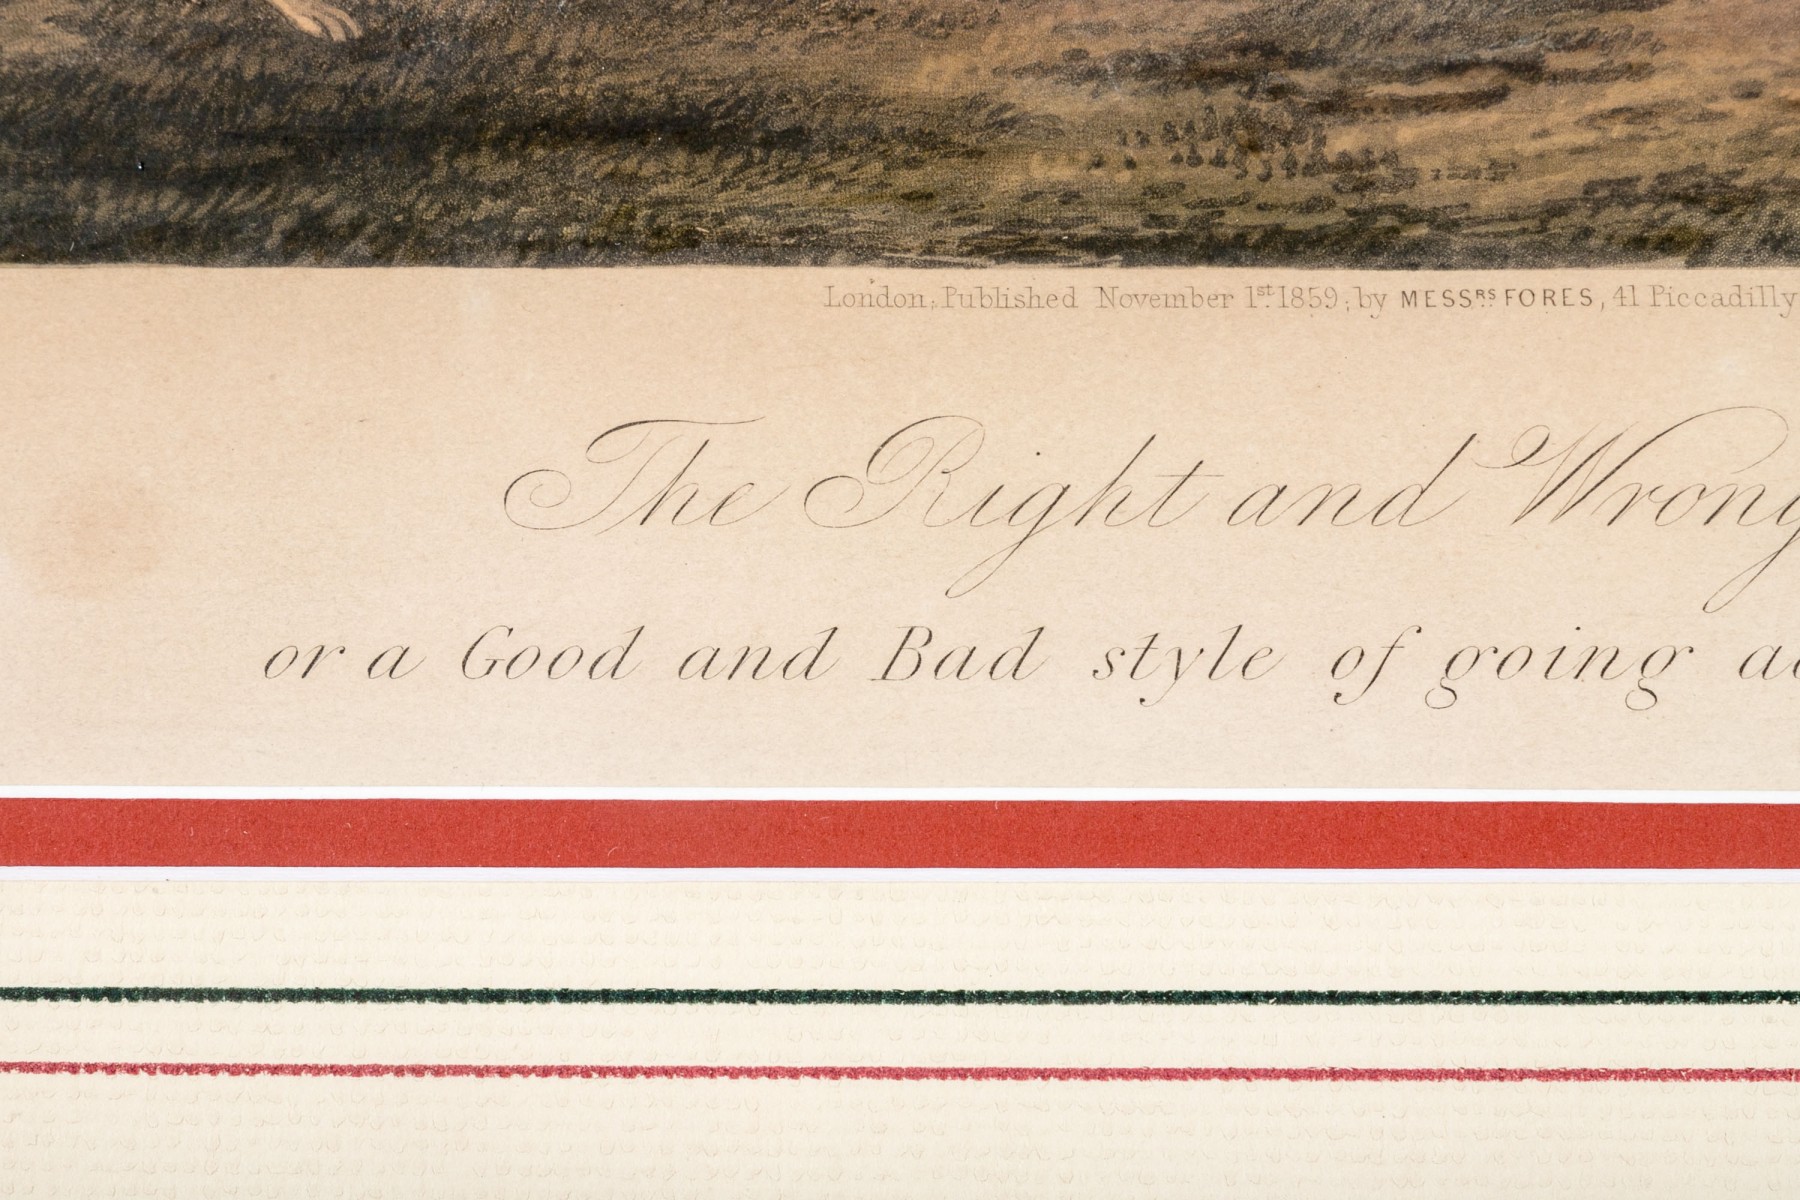 London, Published November 1st 1859, by MESSRS FORES, 41 Piccadilly
The Right and Wrong
or a Good and Bad style of going